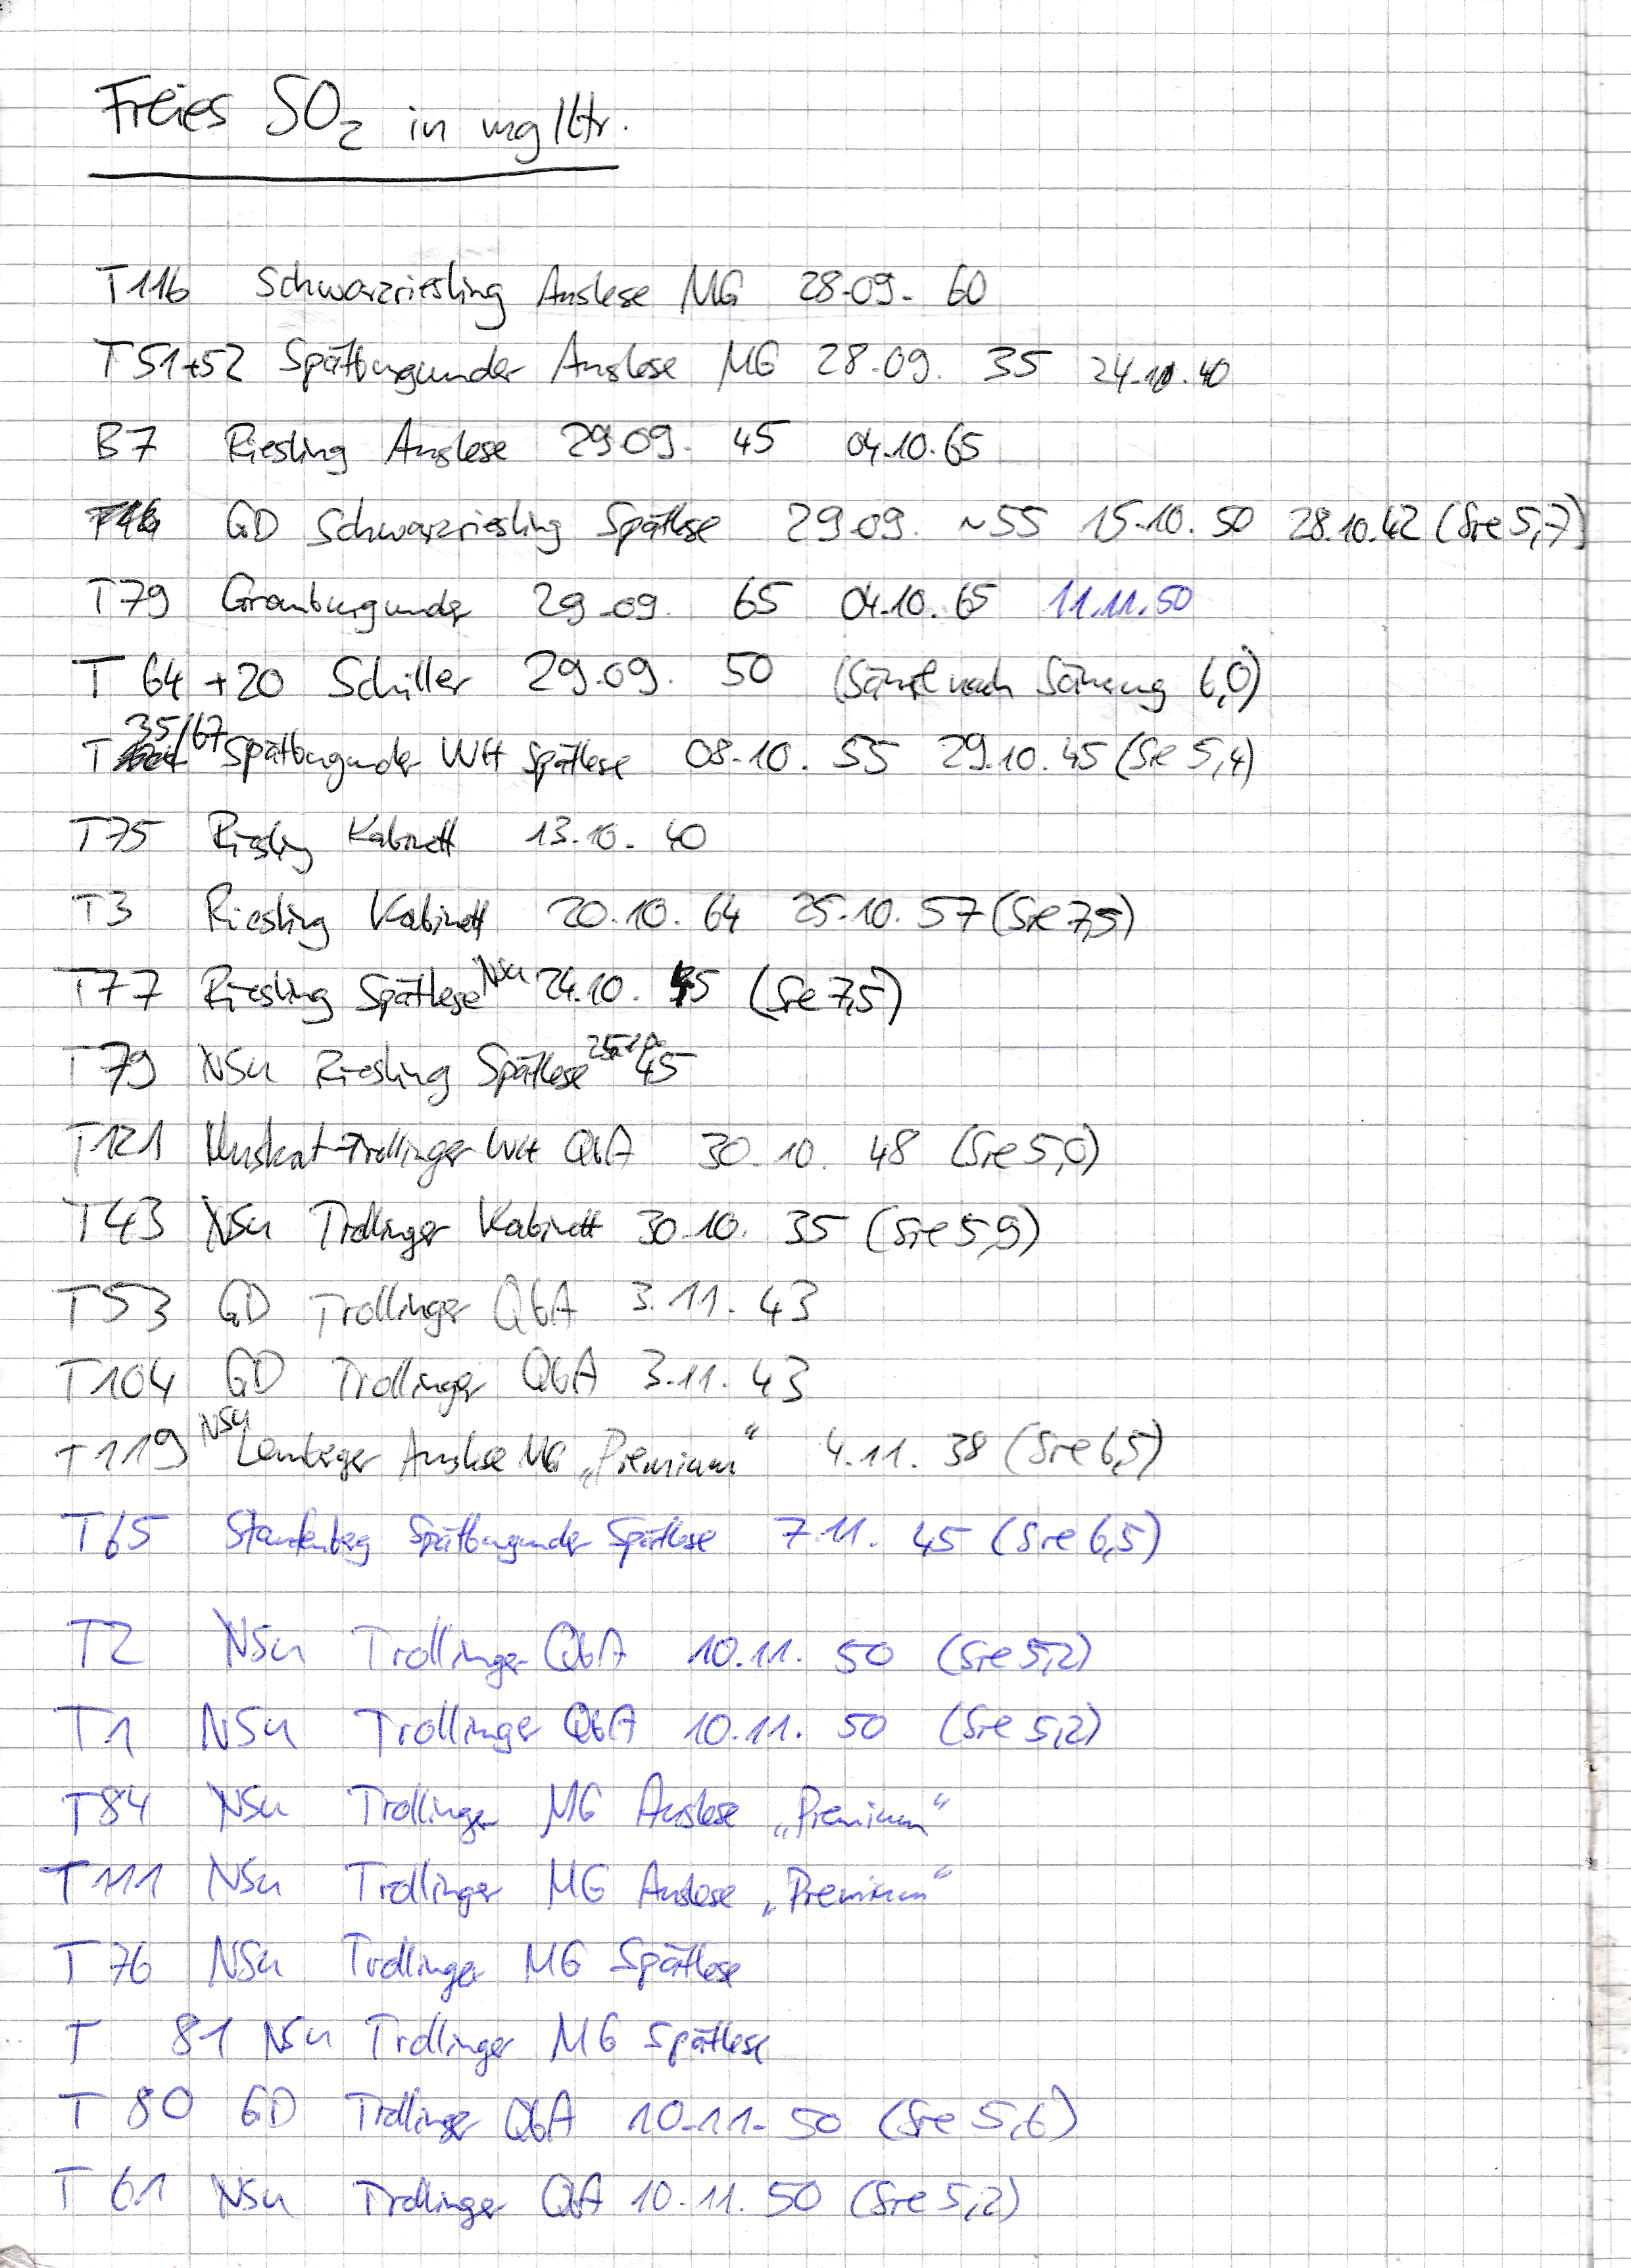 Freies SO₂ in mg/ltr.
T116 Schwarzriesling Auslese MG 28.09. 60
T51+52 Spätburgunder Auslese MG 28.09. 35 24.10.40
B7 Riesling Auslese 29.09. 45 04.10.65
GD Schwarzriesling Spätlese 29.09. ~55 15.10. 50 28.10.42 (Sre 5,7)
T79 Grauburgunder 29.09. 65 04.10.65 11.11.50
T 64+20 Schiller 29.09. 50 (Säure nach Säuerung 6,0)
T 35/67 Spätburgunder WH Spätlese 08.10. 55 29.10.45 (Sre 5,4)
T75 Riesling Kabinett 13.10. 40
T3 Riesling Kabinett 20.10. 64 25.10. 57 (Sre 7,5)
T77 Riesling Spätlese NSU 24.10. 45 (Sre 7,5)
T79 NSU Riesling Spätlese 25.10. 45
T121 Muskat-Trollinger WH QbA 30.10. 48 (Sre 5,0)
T43 NSU Trollinger Kabinett 30.10. 35 (Sre 5,9)
T53 GD Trollinger QbA 3.11. 43
T104 GD Trollinger QbA 3.11. 43
T119 NSU Lemberger Auslese MG „Premium“ 4.11. 38 (Sre 6,5)
T65 Staufenberg Spätburgunder Spätlese 7.11. 45 (Sre 6,5)
T2 NSU Trollinger QbA 10.11. 50 (Sre 5,2)
T1 NSU Trollinger QbA 10.11. 50 (Sre 5,2)
T84 NSU Trollinger MG Auslese „Premium“
T111 NSU Trollinger MG Auslese „Premium“
T 76 NSU Trollinger MG Spätlese
T 81 NSU Trollinger MG Spätlese
T 80 GD Trollinger QbA 10.11. 50 (Sre 5,6)
T 61 NSU Trollinger QbA 10.11. 50 (Sre 5,2)